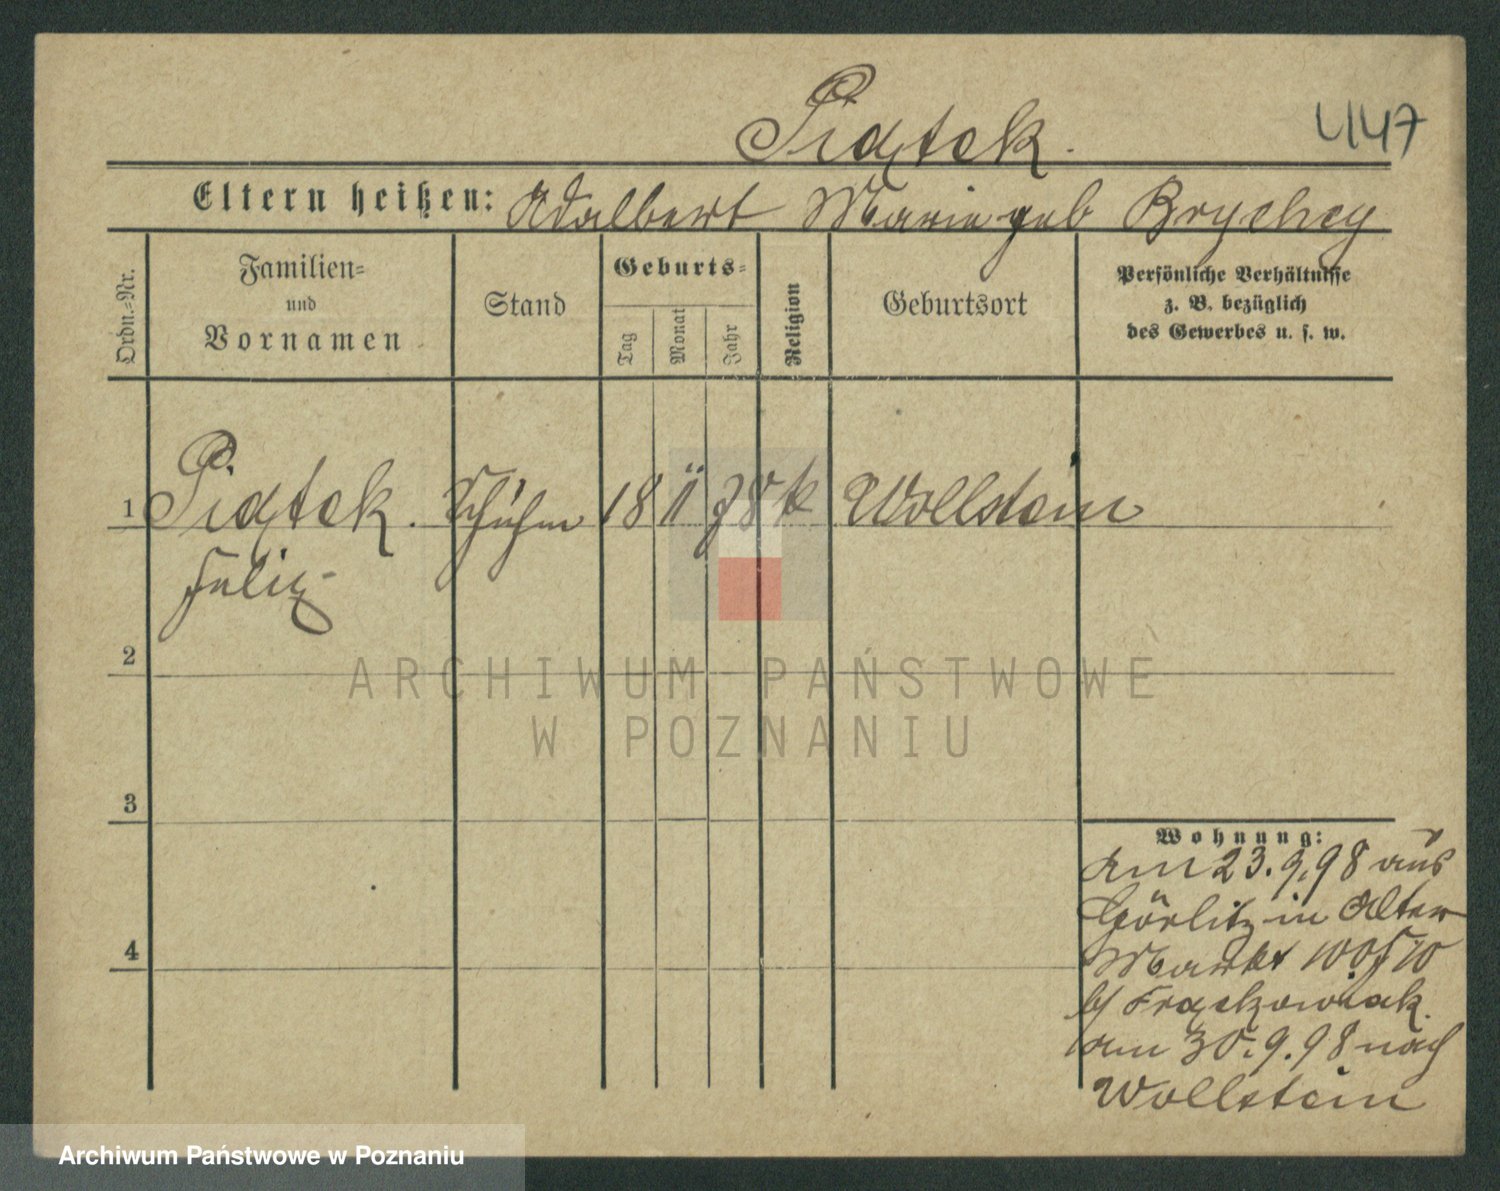 Piątek.
447
Eltern heißen: Adalbert Marie geb Brychcy
Ordn.=Nr.
Familien=
und
Vornamen
Stand
Geburts=
Tag
Monat
Jahr
Religion
Geburtsort
Persönliche Verhältnisse
z. B. bezüglich
des Gewerbes u. s. w.
1 Piątek. Schuhm 18 11 78 k Wollstein
Felix
2
ARCHIWUM PAŃSTWOWE
W POZNANIU
3
4
Wohnung:
am 23.9.98 aus
Görlitz in Alter
Markt
b/ Frąckowiak.
am 30.9.98 nach
Wollstein
Archiwum Państwowe w Poznaniu